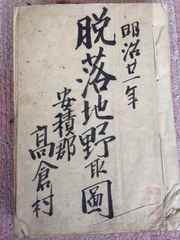 明治廿一年
脱落地野取圖
安積郡
高倉村